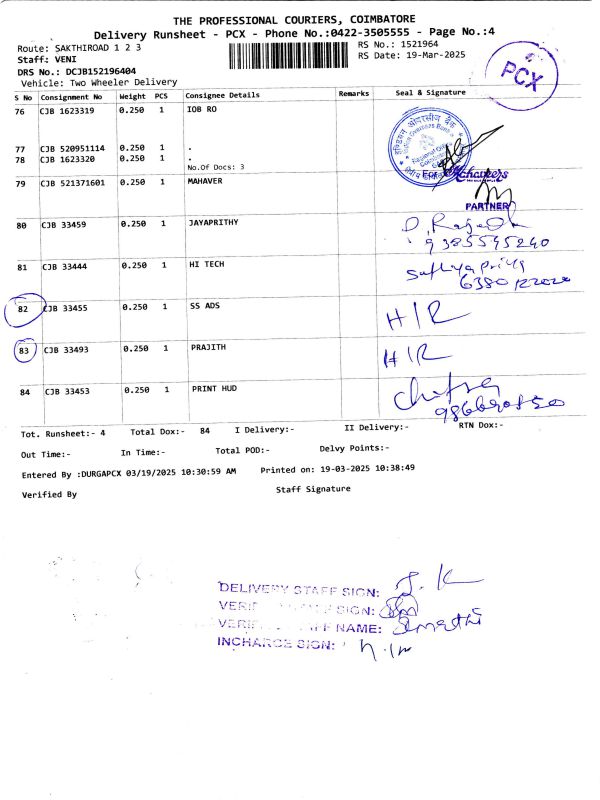 THE PROFESSIONAL COURIERS, COIMBATORE
Delivery Runsheet - PCX - Phone No.:0422-3505555 - Page No.:4
Route: SAKTHIROAD 1 2 3
RS No.: 1521964
Staff: VENI
RS Date: 19-Mar-2025
DRS No.: DCJB152196404
Vehicle: Two Wheeler Delivery
PCX
S No Consignment No Weight PCS Consignee Details Remarks Seal & Signature
76 CJB 1623319 0.250 1 IOB RO
77 CJB 520951114 0.250 1 .
78 CJB 1623320 0.250 1 .
No.Of Docs: 3
इण्डियन ओवरसीज़ बैंक
Indian Overseas Bank
Regional Office
79 CJB 521371601 0.250 1 MAHAVER
For Mahaveers
PARTNER
80 CJB 33459 0.250 1 JAYAPRITHY
9385595240
81 CJB 33444 0.250 1 HI TECH
Sathyapriya
82 CJB 33455 0.250 1 SS ADS H/R
83 CJB 33493 0.250 1 PRAJITH H/R
84 CJB 33453 0.250 1 PRINT HUD
Tot. Runsheet:- 4 Total Dox:- 84 I Delivery:- II Delivery:- RTN Dox:-
Out Time:- In Time:- Total POD:- Delvy Points:-
Entered By :DURGAPCX 03/19/2025 10:30:59 AM Printed on: 19-03-2025 10:38:49
Verified By Staff Signature
DELIVERY STAFF SIGN: J. K
SIGN:
STAFF NAME:
INCHARGE SIGN: